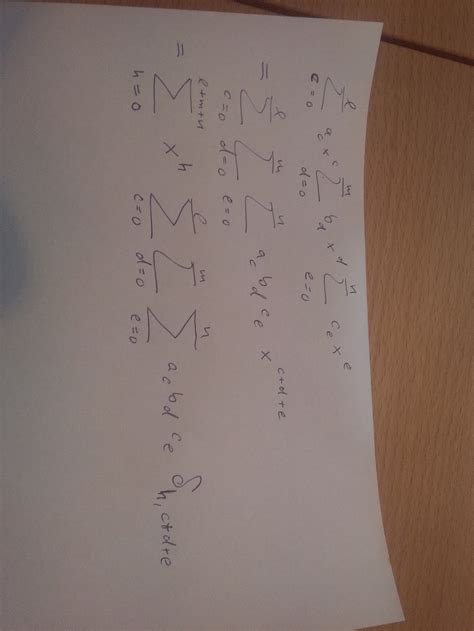 \sum_{c=0}^{l} a_c x^c \sum_{d=0}^{m} b_d x^d \sum_{e=0}^{n} c_e x^e
= \sum_{c=0}^{l} \sum_{d=0}^{m} \sum_{e=0}^{n} a_c b_d c_e x^{c+d+e}
= \sum_{h=0}^{l+m+n} x^h \sum_{c=0}^{l} \sum_{d=0}^{m} \sum_{e=0}^{n} a_c b_d c_e \delta_{h,c+d+e}